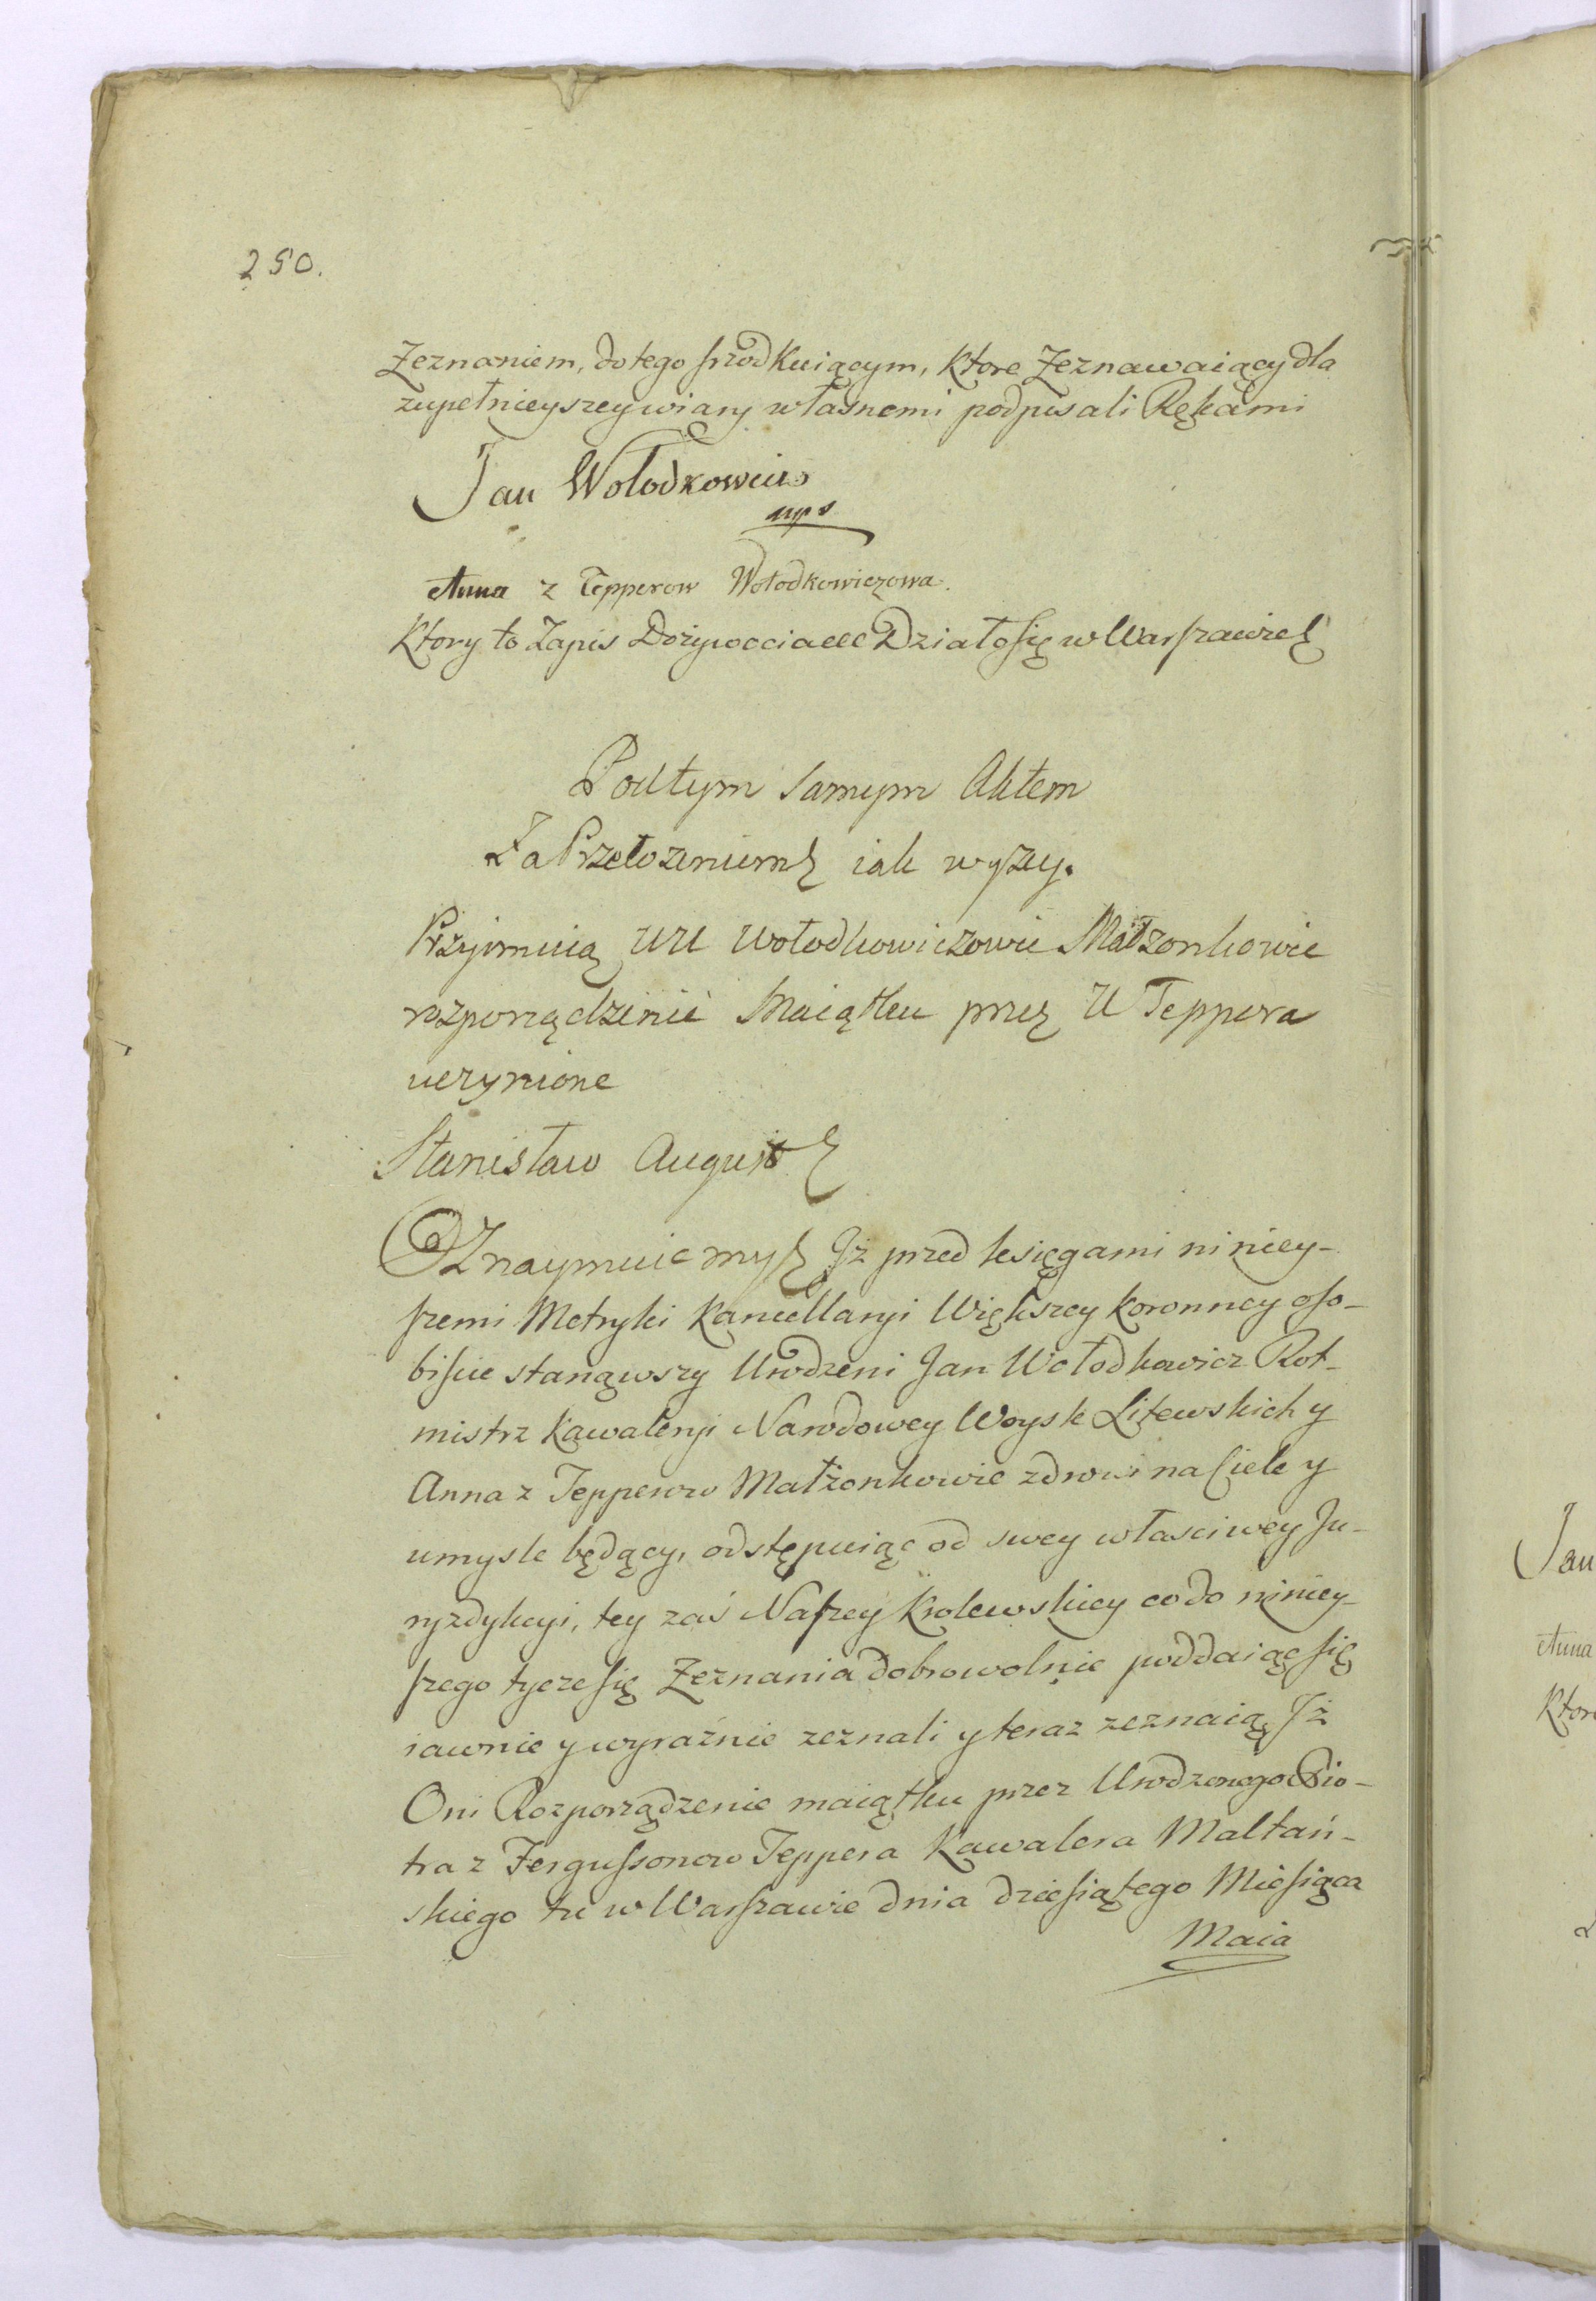 250.
Zeznaniem, do tego srzodkuiącym, ktore Zeznawaiący dla
zupełnieyszey wiary własnemi podpisali Rękami
Jan Wołodkowicz
mps
Anna z Tepperow Wołodkowiczowa.
Ktory to Zapis Dożywocia etc Działo się w Warszawie etc
Pod tym samym Aktem
Za Przełożeniem etc iak wyzey.
Przyimuią UU Wołodkowiczowie Małżonkowie
rozporządzenie Maiątku przez U Teppera
uczynione
Stanisław August etc
OZnaymuiemy etc Iż przed księgami niniey-
szemi Metryki Kancellaryi Większey Koronney oso-
biście stanąwszy Urodzeni Jan Wołodkowicz Rot-
mistrz Kawaleryi Narodowey Woysk Litewskich y
Anna z Tepperow Małżonkowie zdrowi na Ciele y
umysle będący, odstępuiąc od swey własciwey Ju-
ryzdykcyi, tey zaś Naszey Krolewskiey co do niniey-
szego tycze się Zeznania dobrowolnie poddaiąc się
iawnie y wyraźnie zeznali y teraz zeznaią Iż
Oni Rozporządzenie maiątku przez Urodzonego Pio-
tra z Fergussonow Teppera Kawalera Maltań-
skiego tu w Warszawie dnia dziesiątego Miesiąca
Maia
Jan
Anna
Ktore